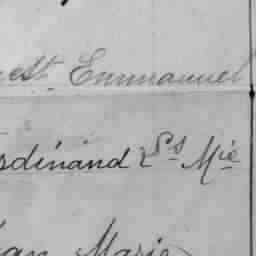 St. Emmanuel
rdinand Ls Mie
ean Marie